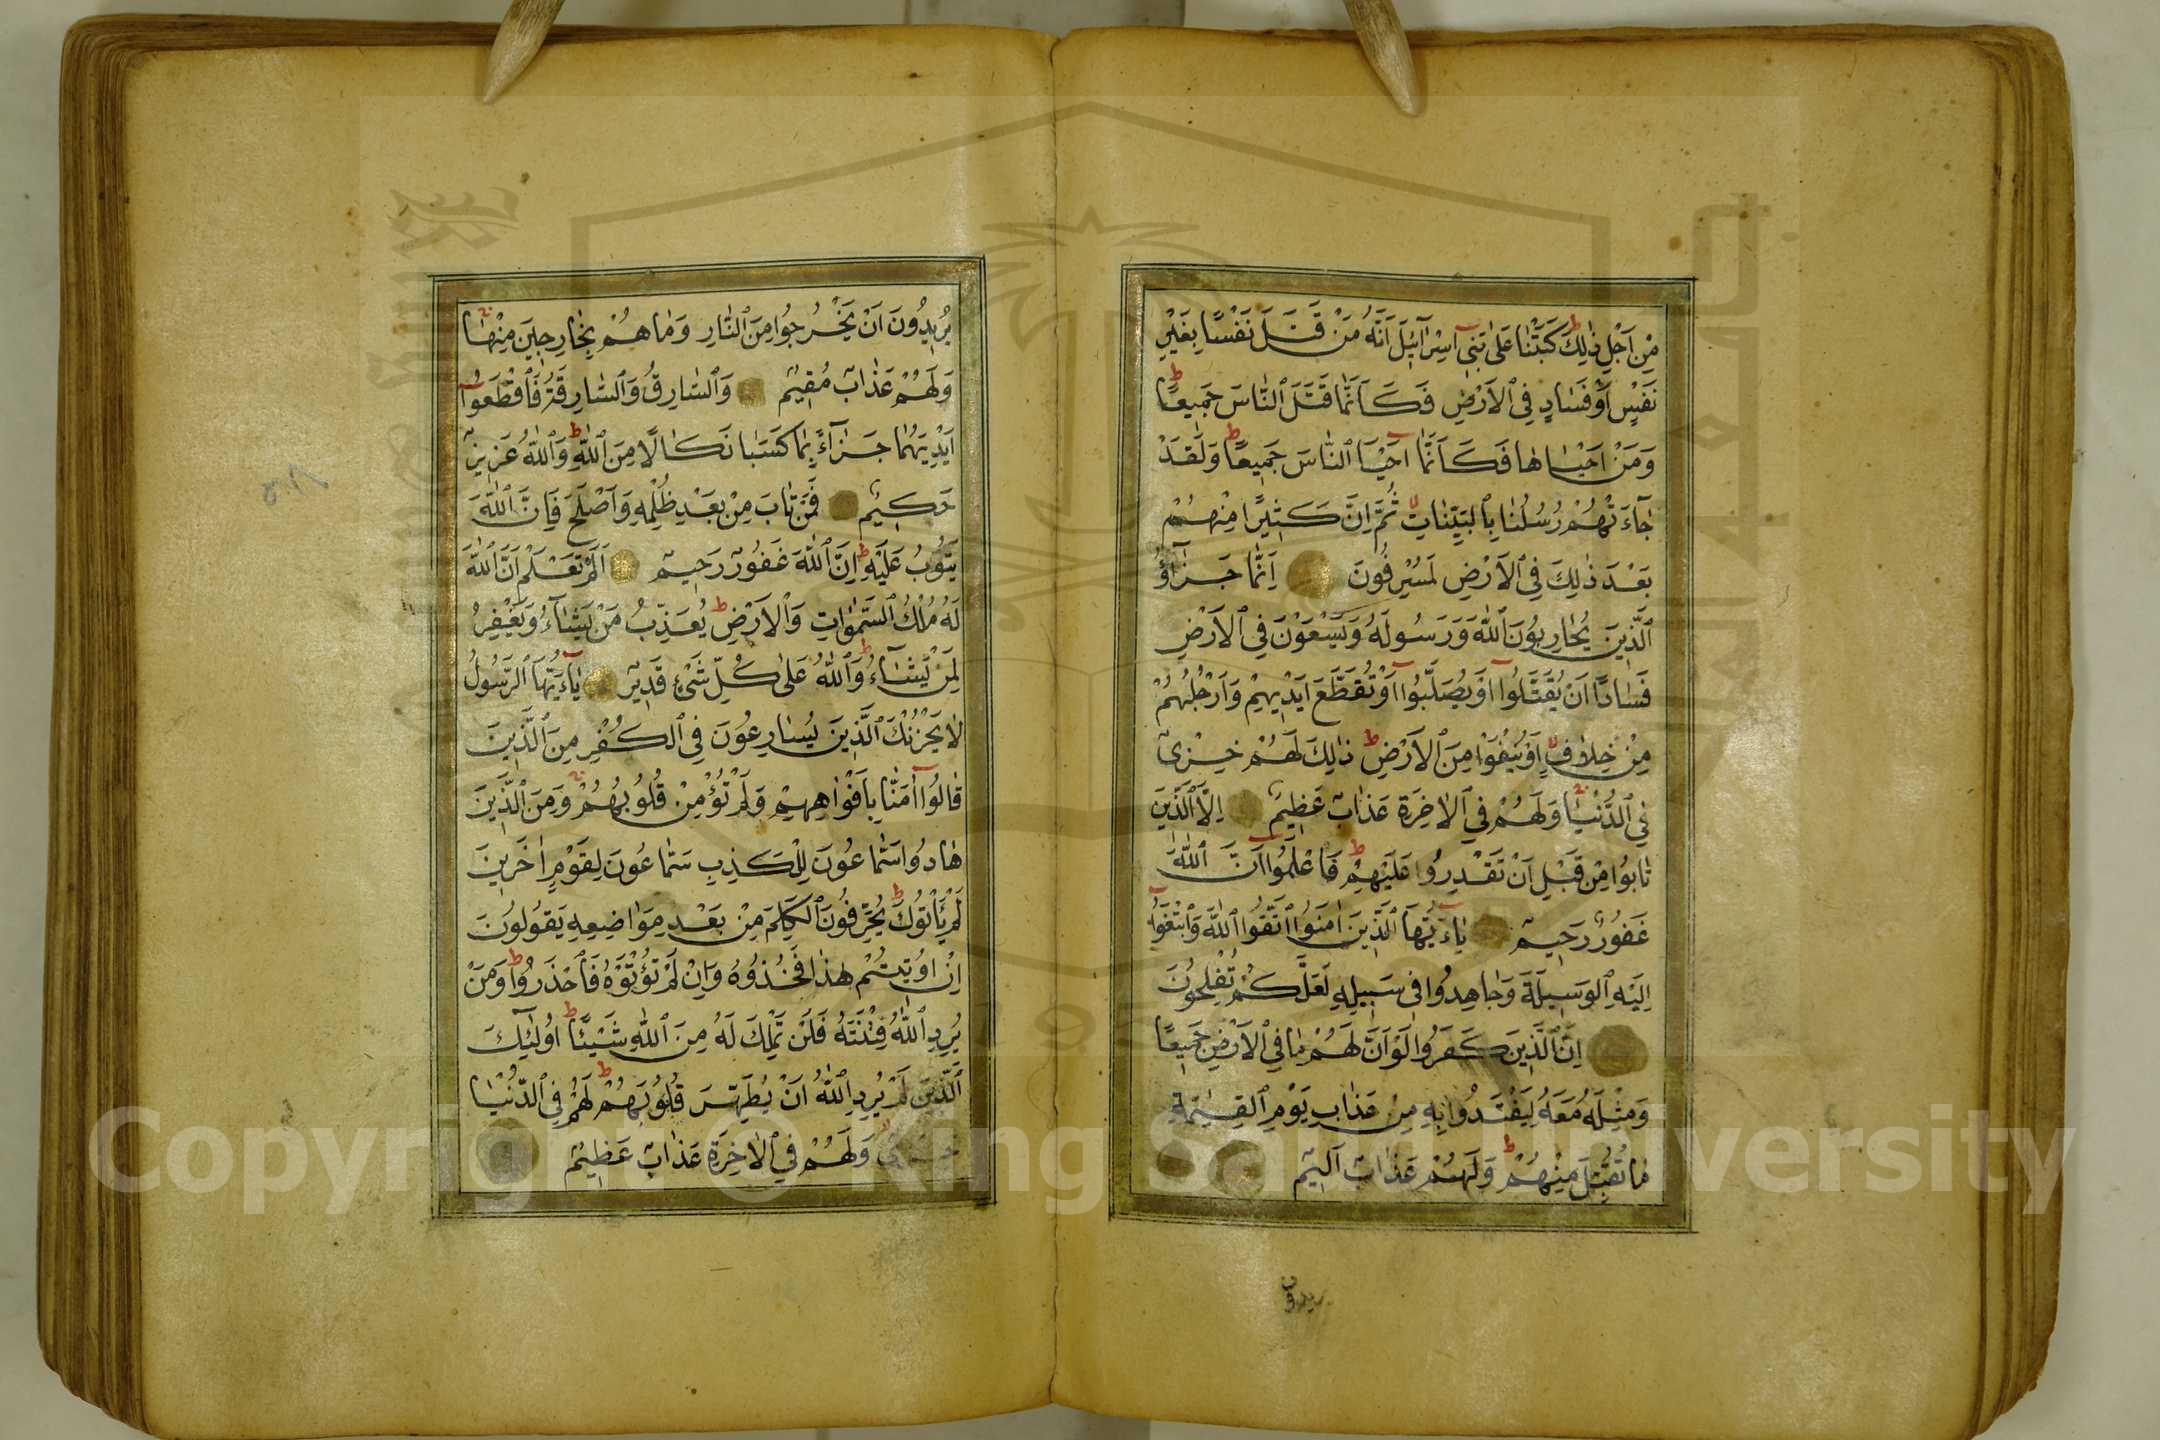 مِنْ اَجْلِ ذٰلِكَ كَتَبْنَا عَلٰى بَنِىٓ اِسْرَآئِلَ اَنَّهُ مَنْ قَتَلَ نَفْسًا بِغَيْرِ
نَفْسٍ اَوْ فَسَادٍ فِى ٱلْاَرْضِ فَكَاَنَّمَا قَتَلَ ٱلنَّاسَ جَمِيعًا
وَمَنْ اَحْيَاهَا فَكَاَنَّمَٓا اَحْيَا ٱلنَّاسَ جَمِيعًا وَلَقَدْ
جَٓاءَتْهُمْ رُسُلُنَا بِٱلْبَيِّنَاتِ ثُمَّ اِنَّ كَثِيرًا مِنْهُمْ
بَعْدَ ذٰلِكَ فِى ٱلْاَرْضِ لَمُسْرِفُونَ اِنَّمَا جَزَٓاؤُ
ٱلَّذِينَ يُحَارِبُونَ ٱللّٰهَ وَرَسُولَهُ وَيَسْعَوْنَ فِى ٱلْاَرْضِ
فَسَادًا اَنْ يُقَتَّلُوٓا اَوْ يُصَلَّبُوٓا اَوْ تُقَطَّعَ اَيْدِيهِمْ وَاَرْجُلُهُمْ
مِنْ خِلَافٍ اَوْ يُنْفَوْا مِنَ ٱلْاَرْضِ ذٰلِكَ لَهُمْ خِزْىٌ
فِى ٱلدُّنْيَا وَلَهُمْ فِى ٱلْاٰخِرَةِ عَذَابٌ عَظِيمٌ اِلَّا ٱلَّذِينَ
تَابُوا مِنْ قَبْلِ اَنْ تَقْدِرُوا عَلَيْهِمْ فَاعْلَمُوٓا اَنَّ ٱللّٰهَ
غَفُورٌ رَحِيمٌ يَٓاءَيُّهَا ٱلَّذِينَ اٰمَنُوا ٱتَّقُوا ٱللّٰهَ وَٱبْتَغُوٓا
اِلَيْهِ ٱلْوَسِيلَةَ وَجَاهِدُوا فِى سَبِيلِهِ لَعَلَّكُمْ تُفْلِحُونَ
اِنَّ ٱلَّذِينَ كَفَرُوا لَوْ اَنَّ لَهُمْ مَا فِى ٱلْاَرْضِ جَمِيعًا
وَمِثْلَهُ مَعَهُ لِيَفْتَدُوا بِهِ مِنْ عَذَابِ يَوْمِ ٱلْقِيٰمَةِ
مَا تُقُبِّلَ مِنْهُمْ وَلَهُمْ عَذَابٌ اَلِيمٌ
يريدون
يُرِيدُونَ اَنْ يَخْرُجُوا مِنَ ٱلنَّارِ وَمَا هُمْ بِخَارِجِينَ مِنْهَا
وَلَهُمْ عَذَابٌ مُقِيمٌ وَٱلسَّارِقُ وَٱلسَّارِقَةُ فَٱقْطَعُوٓا
اَيْدِيَهُمَا جَزَٓاءً بِمَا كَسَبَا نَكَالًا مِنَ ٱللّٰهِ وَٱللّٰهُ عَزِيزٌ
حَكِيمٌ فَمَنْ تَابَ مِنْ بَعْدِ ظُلْمِهِ وَاَصْلَحَ فَاِنَّ ٱللّٰهَ
يَتُوبُ عَلَيْهِ اِنَّ ٱللّٰهَ غَفُورٌ رَحِيمٌ اَلَمْ تَعْلَمْ اَنَّ ٱللّٰهَ
لَهُ مُلْكُ ٱلسَّمٰوَاتِ وَٱلْاَرْضِ يُعَذِّبُ مَنْ يَشَٓاءُ وَيَغْفِرُ
لِمَنْ يَشَٓاءُ وَٱللّٰهُ عَلٰى كُلِّ شَىْءٍ قَدِيرٌ يَٓاءَيُّهَا ٱلرَّسُولُ
لَا يَحْزُنْكَ ٱلَّذِينَ يُسَارِعُونَ فِى ٱلْكُفْرِ مِنَ ٱلَّذِينَ
قَالُوٓا اٰمَنَّا بِاَفْوَاهِهِمْ وَلَمْ تُؤْمِنْ قُلُوبُهُمْ وَمِنَ ٱلَّذِينَ
هَادُوا سَمَّاعُونَ لِلْكَذِبِ سَمَّاعُونَ لِقَوْمٍ اٰخَرِينَ
لَمْ يَأْتُوكَ يُحَرِّفُونَ ٱلْكَلِمَ مِنْ بَعْدِ مَوَاضِعِهِ يَقُولُونَ
اِنْ اُوتِيتُمْ هٰذَا فَخُذُوهُ وَاِنْ لَمْ تُؤْتَوْهُ فَٱحْذَرُوا وَمَنْ
يُرِدِ ٱللّٰهُ فِتْنَتَهُ فَلَنْ تَمْلِكَ لَهُ مِنَ ٱللّٰهِ شَيْئًا اُولٰٓئِكَ
ٱلَّذِينَ لَمْ يُرِدِ ٱللّٰهُ اَنْ يُطَهِّرَ قُلُوبَهُمْ لَهُمْ فِى ٱلدُّنْيَا
خِزْىٌ وَلَهُمْ فِى ٱلْاٰخِرَةِ عَذَابٌ عَظِيمٌ
Copyright © King Saud University